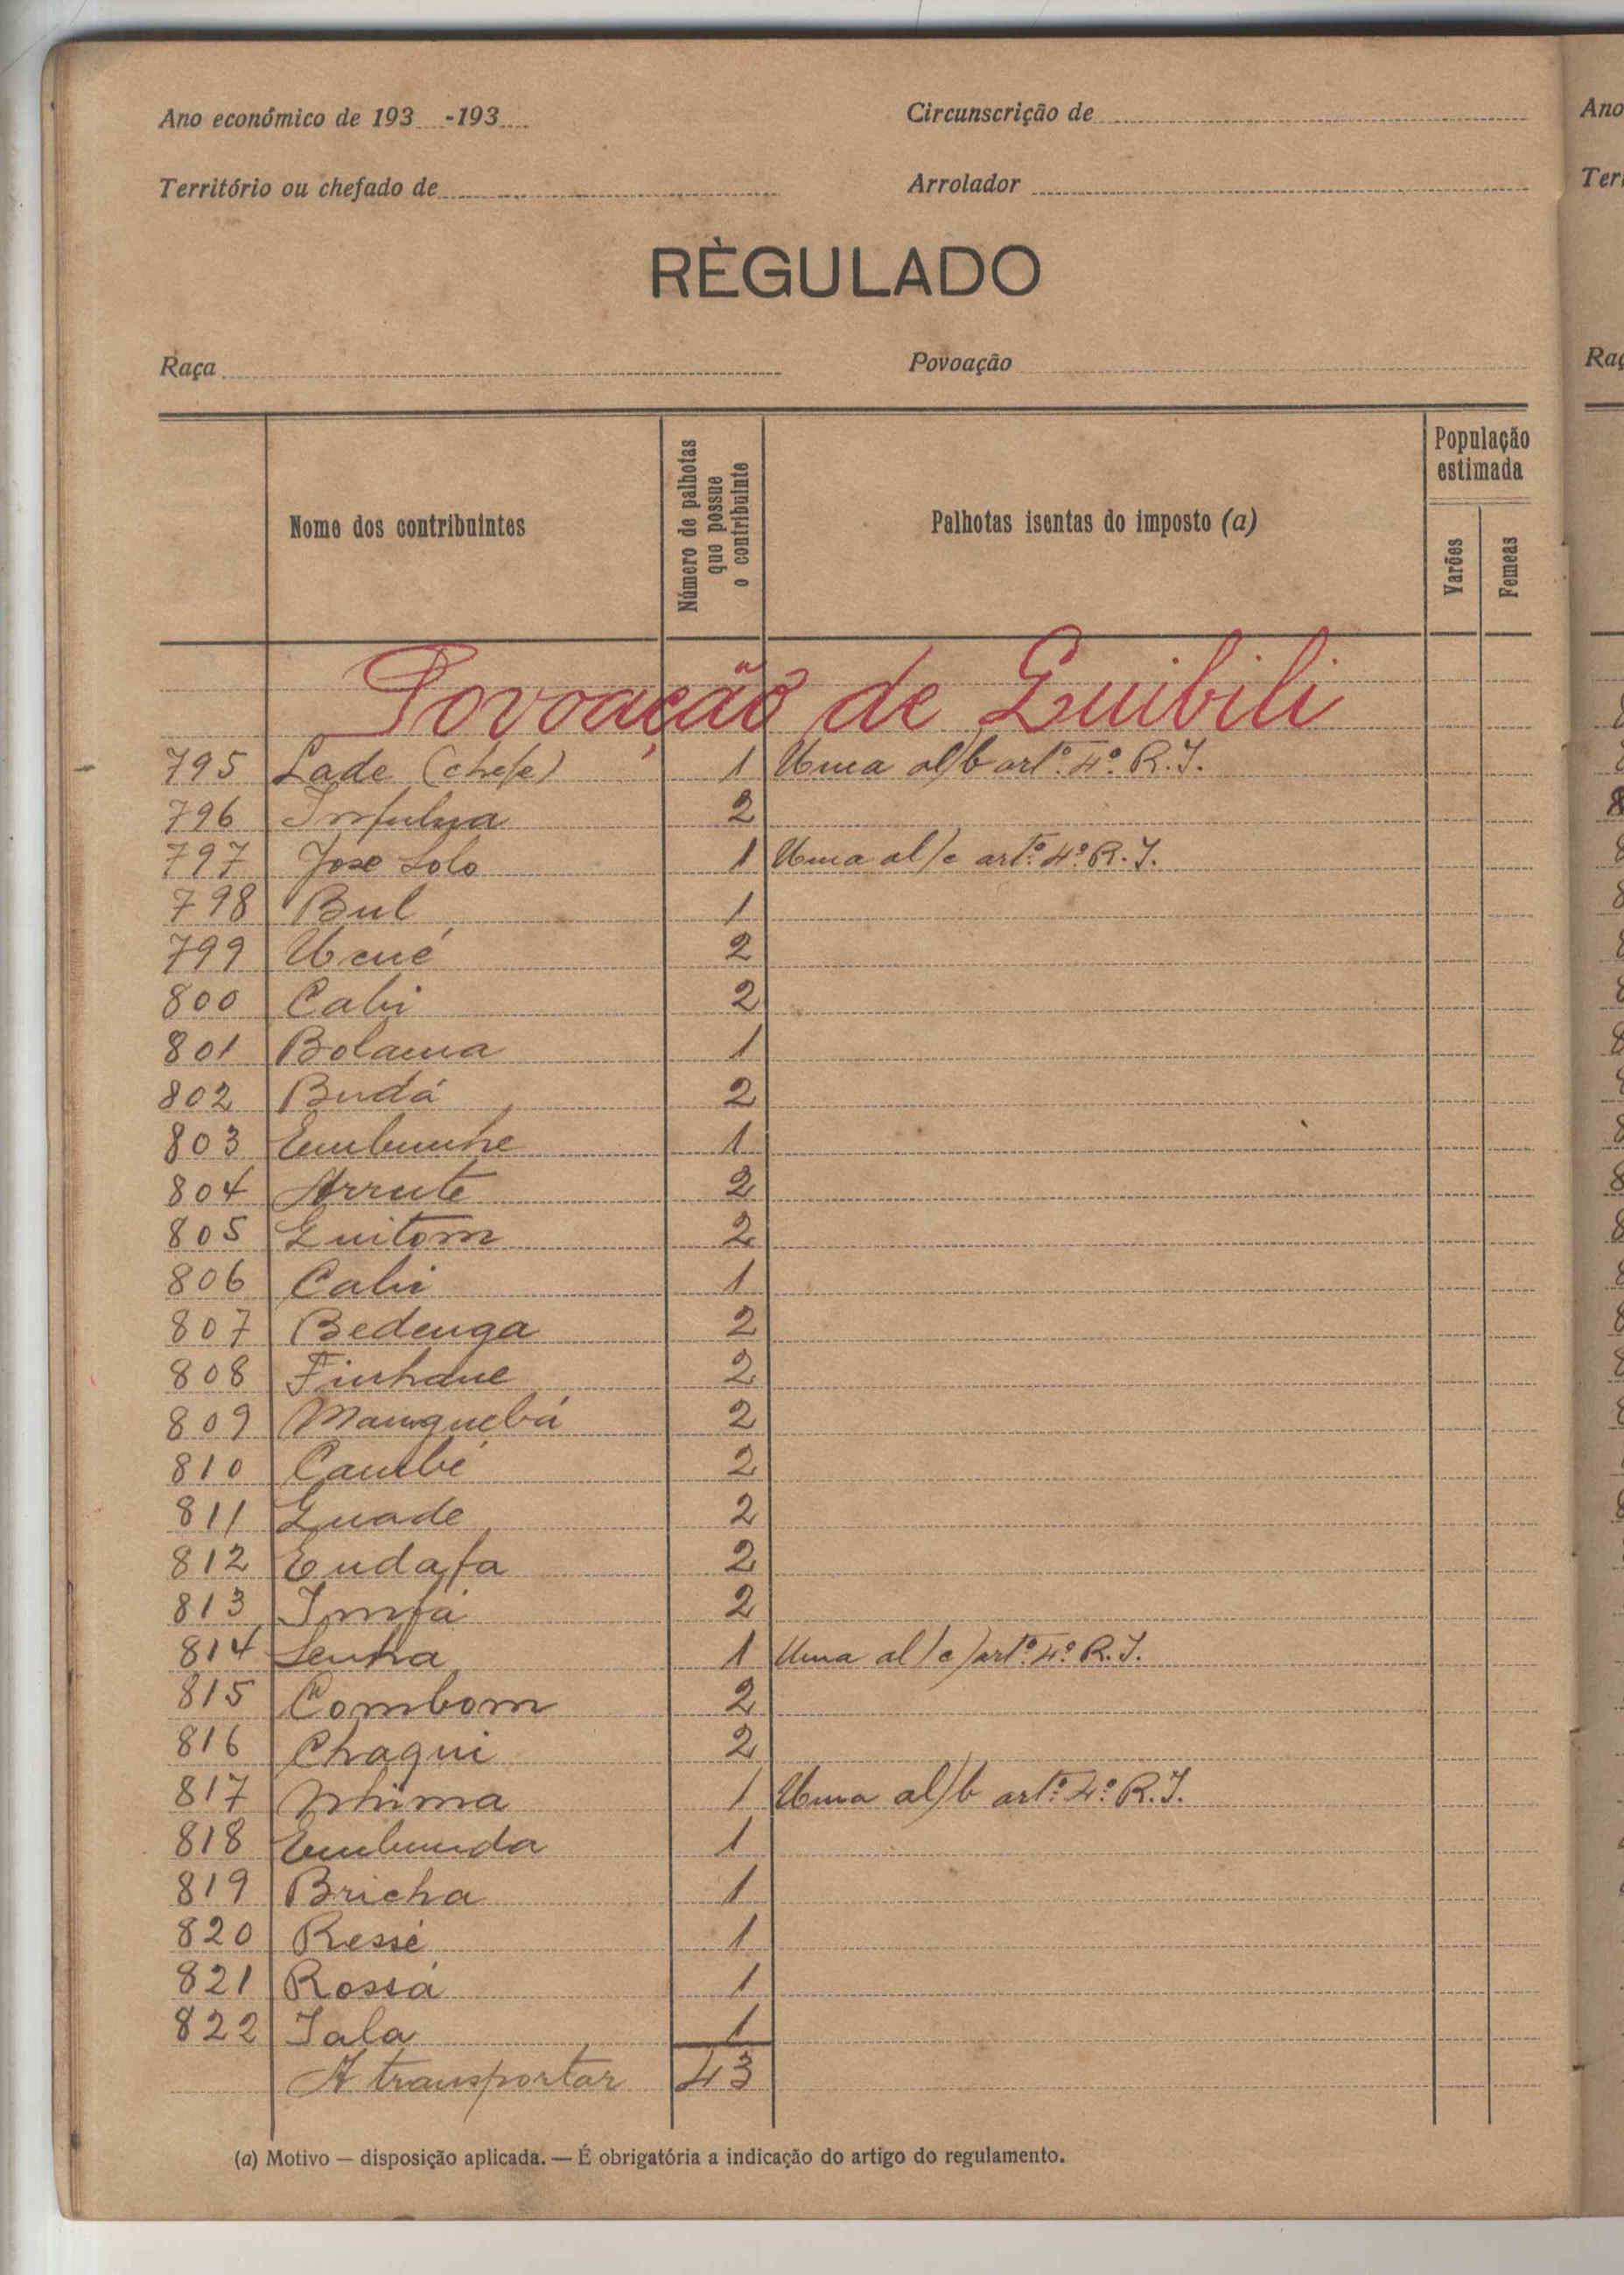 Ano económico de 193 -193
Circunscrição de
Território ou chefado de
Arrolador
RÈGULADO
Raça
Povoação
Nome dos contribuintes
Número de palhotas que possue o contribuinte
Palhotas isentas do imposto (a)
População estimada
Varões
Femeas
Povoação de Guibili
795 Lade (chefe) 1 Uma al/b artº. 4º. R.I.
796 2
797 Jose Lolo 1 Uma al/c artº. 4º. R.I.
798 Bul 1
799 Ucué 2
800 Cabi 2
801 Bolama 1
802 Budá 2
803 Embunhe 1
804 Arrute 2
805 Guitom 2
806 Cabi 1
807 Bedenga 2
808 Finhane 2
809 Manguebá 2
810 Cambé 2
811 Guade 2
812 Endafa 2
813 Imfá 2
814 Senha 1 Uma al/c/artº. 4º. R.I.
815 Combom 2
816 Chaqui 2
817 Nhima 1 Uma al/b artº. 4º. R.I.
818 Embunda 1
819 Bricha 1
820 Ressé 1
821 Rossá 1
822 Iala 1
A transportar 43
(a) Motivo — disposição aplicada. — É obrigatória a indicação do artigo do regulamento.
Ano